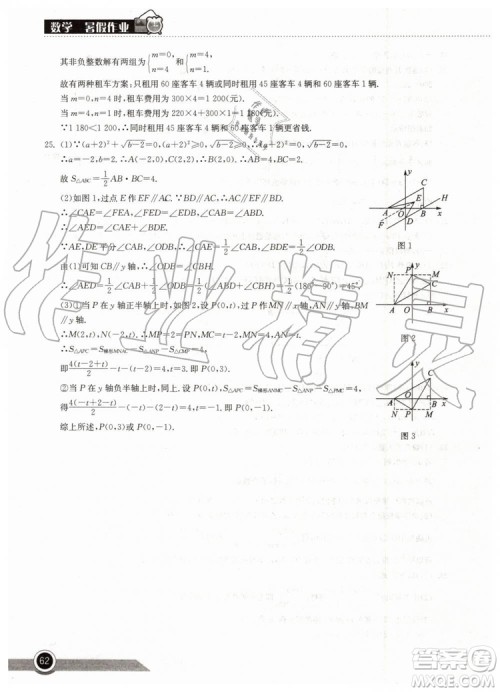 数学 暑假作业
其非负整数解有两组为{m=0, n=4 和{m=4, n=1.
故有两种租车方案:只租用 60 座客车 4 辆或同时租用 45 座客车 4 辆和 60 座客车 1 辆.
当 m=0,n=4 时,租车费用为 300×4=1 200(元).
当 m=4,n=1 时,租车费用为 220×4+300×1=1180(元).
∵1 180<1 200,∴同时租用 45 座客车 4 辆和 60 座客车 1 辆更省钱.
25. (1)∵(a+2)²+√(b−2)=0,(a+2)²≥0,√(b−2)≥0,
∴a=−2,b=2.∴A(−2,0),B(2,0),C(2,2).∴AB=4,BC=2.
故 S△ABC=1/2 AB·BC=4.
(2)如图 1,过点 E 作 EF//AC.∵BD//AC,∴BD//EF//AC.
∴∠CAE=∠FEA,∠FED=∠EDB.∴∠AED=∠FEA+∠FED.
∴∠AED=∠CAE+∠EDB.
∵AE,DE平分∠CAB,∠ODB,∴∠CAE=1/2∠CAB,∠EDB=1/2∠ODB.
由(1)可知 CB//y 轴,∴∠ODB=∠CBH.
∴∠AED=1/2∠CAB+1/2∠ODB=1/2(∠CAB+∠CBH)=1/2(180°−90°)=45°.
(3)①当 P 在 y 轴正半轴上时,如图 2,设 P(0,t),过 P 作 MN//x 轴,AN//y 轴,BM//y 轴.
∴M(2,t),N(−2,t),C(2,2).∴MN=4,CM=t−2,AN=t.
∴S△APC=S梯形MNAC−S△CMP−S△ANP=4.
即 4(t−2+t)/2−t−(t−2)=4,解得 t=3.即 P(0,3).
②当 P 在 y 轴负半轴上时,同上.设 P(0,t),S△APC=S梯形ANMC−S△ANP−S△PMC=4.
得 4(−t+2−t)/2−(−t)−(2−t)=4,解得 t=−1.即 P(0,−1).
综上所述,P(0,3)或 P(0,−1).
y
C
E
A
O
B
x
F
D
图 1
y
N
P
M
C
A
O
B
x
图 2
y
C
A
O
B
x
N
P
M
图 3
作业精灵
62